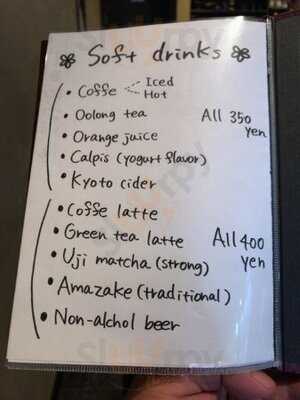 Soft drinks
• Coffe Iced
Hot
• Oolong tea
• Orange juice
• Calpis (yogurt flavor)
• Kyoto cider
All 350
yen
• Coffe latte
• Green tea latte
• Uji matcha (strong)
• Amazake (traditional)
• Non-alchol beer
All 400
yen